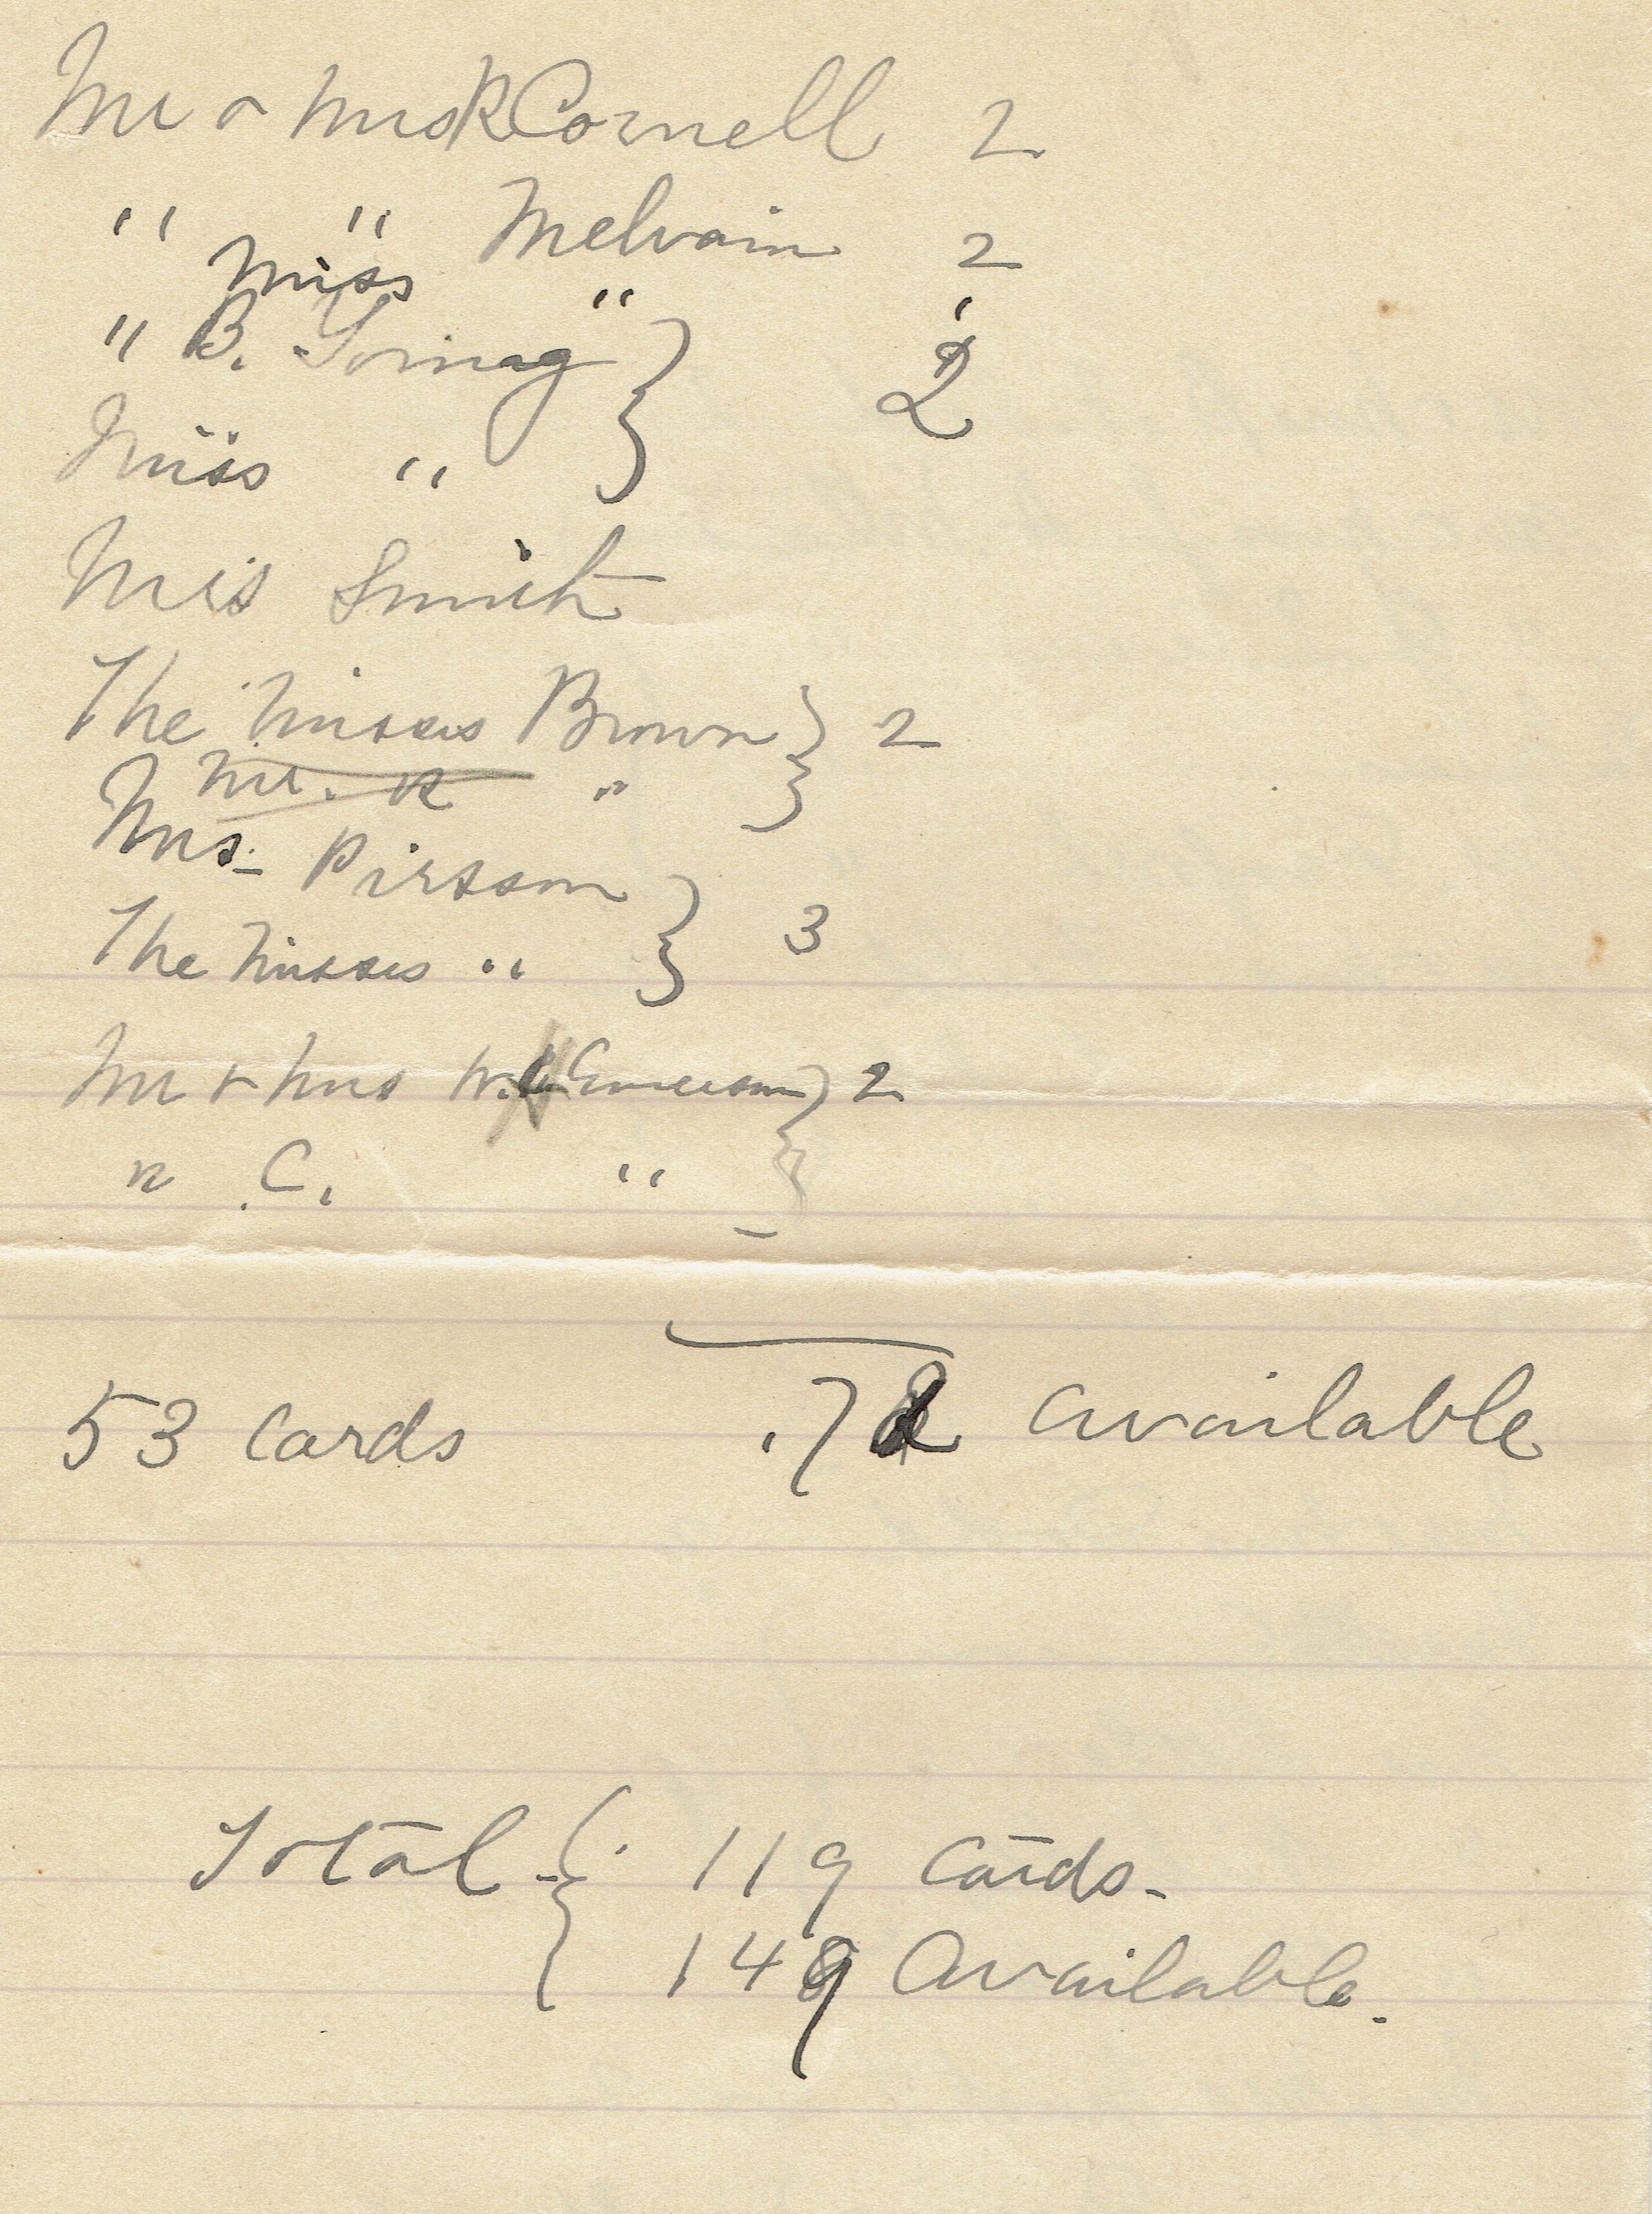 Mr & Mrs R Cornell 2
" " McIlvain 2
Miss " 1
" B. } 2
Miss "
Mrs Smith
The Misses Brown } 2
Mr. R "
Mrs. Pirsson
The Misses " } 3
Mr & Mrs W. Emerson } 2
" C. "
53 Cards 72 available
Total { 119 Cards.
149 Available.